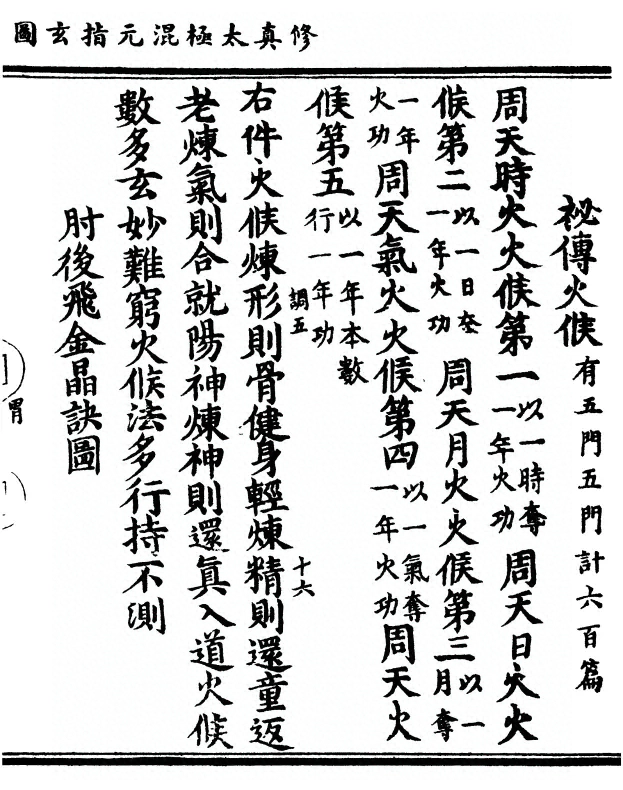 修真太極混元指玄圖
祕傳火候有五門五門計六百篇
周天時火火候第一以一時奪一年火功周天日火火
候第二以一日奪一年火功周天月火火候第三以一月奪
一年火功周天氣火火候第四以一氣奪一年火功周天火
候第五以一年本數行一年功
調五 十六
右件火候煉形則骨健身輕煉精則還童返
老煉氣則合就陽神煉神則還眞入道火候
數多玄妙難窮火候法多行持不測
肘後飛金晶訣圖
胃